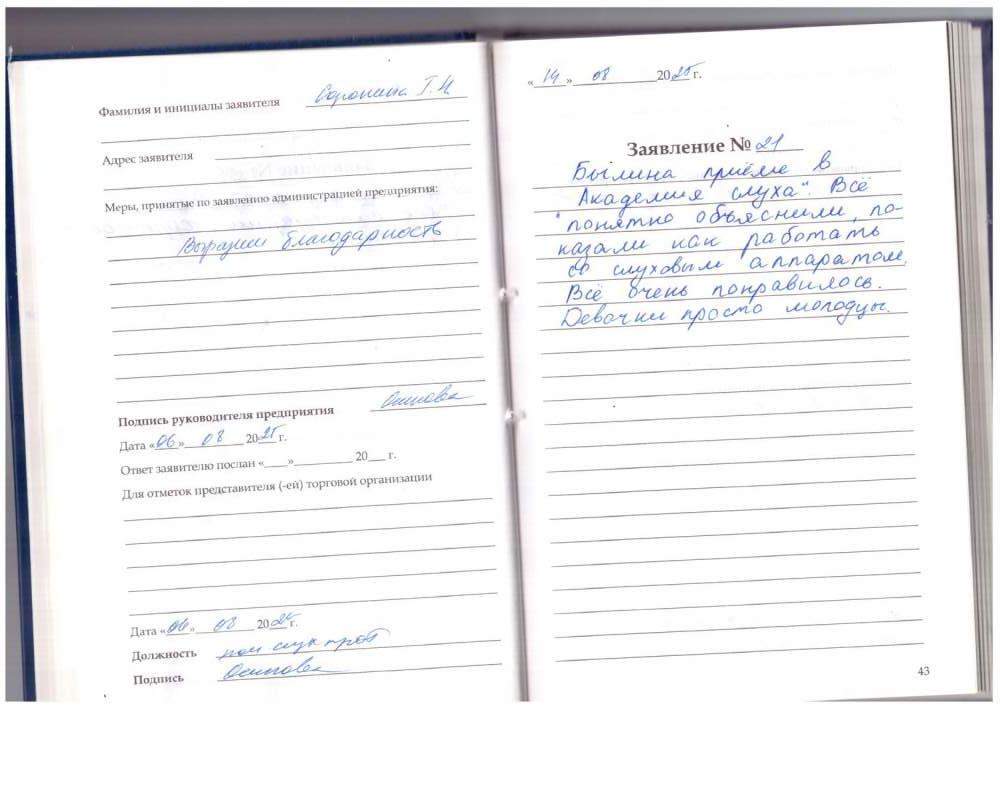 Фамилия и инициалы заявителя Сорокина Т.Н.
Адрес заявителя
Меры, принятые по заявлению администрацией предприятия:
Выразили благодарность
Подпись руководителя предприятия Осипова
Дата «06» 08 2025 г.
Ответ заявителю послан «    »          20    г.
Для отметок представителя (-ей) торговой организации
Дата «06» 08 2025 г.
Должность
Подпись Осипова
«14» 08 2025 г.
Заявление № 21
Былина приёме в
"Академия слуха". Всё
понятно объяснили, по-
казали как работать
со слуховым аппаратом.
Всё очень понравилось.
Девочки просто молодцы.
43